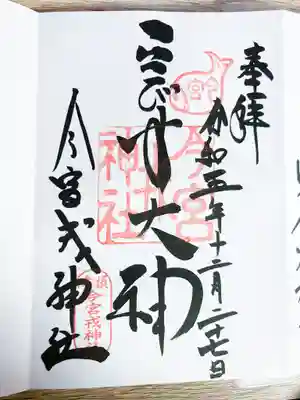 奉拝
令和五年十二月二十七日
ゑびす大神
今宮戎神社
今宮
神社
今宮戎神社